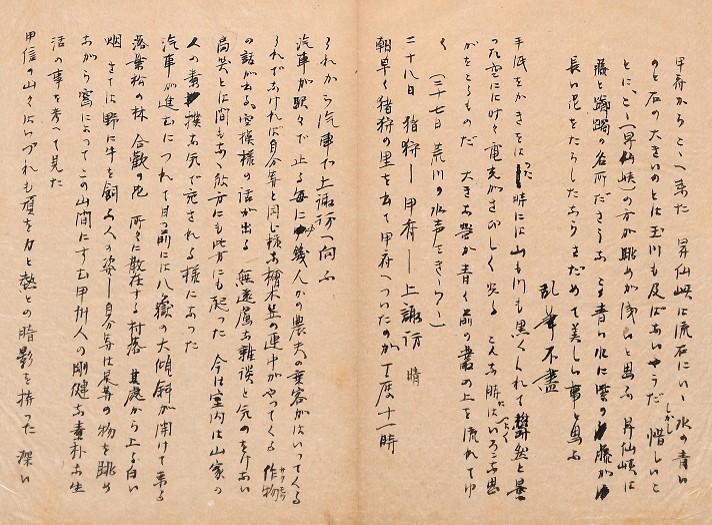 甲府からこゝへ来た 昇仙峡は流石にいゝ 水の青い
のと石の大きいのとは玉川も及ばないやうだ しかし惜しいこ
とに、こゝ(昇仙峡)の方が眺めが浅いと思ふ 昇仙峡は
藤と躑躅の名所ださうな こう青い水に紫の藤が
長い花をたらしたならさだめて美しい事と思ふ
乱筆不盡
手紙をかきをはった時には山も川も黒くくれて 鬱然と曇
った空に時々電光がさびしく光る こんな時はいろいろに思
がをこるものだ 大きな螢が青く前の叢の上を流れてゆ
く (二十七日 荒川の水声をきゝつゝ)
二十八日 猪狩―甲府―上諏訪 晴
朝早く猪狩の里を出て甲府へついたのが丁度十一時
それから汽車で上諏訪へ向ふ
汽車が駅々で止る毎に幾人かの農夫の乗客がはいってくる
それでなければ自分等と同じ様な檜木笠の連中がやってくる 作物
の話が出る。空模様の話が出る 無遠慮な雑談と気のをけない
高笑とは間もなく彼方にも此方にも起った 今は室内は山家の
人の素撲な気で充される様になった
汽車が進むにつれて目の前には八嶽の大傾斜が開けて来る
落葉松の林 合歓の花 所々に散在する村落 其處から上る白い
烟 さては野に牛を飼ふ人の姿―自分等は是等の物を眺め
ながら窓によってこの山間にすむ甲州人の剛健な素朴な生
活の事を考へて見た
甲信の山々はいづれも頂を力と熱との暗影を持った 深い